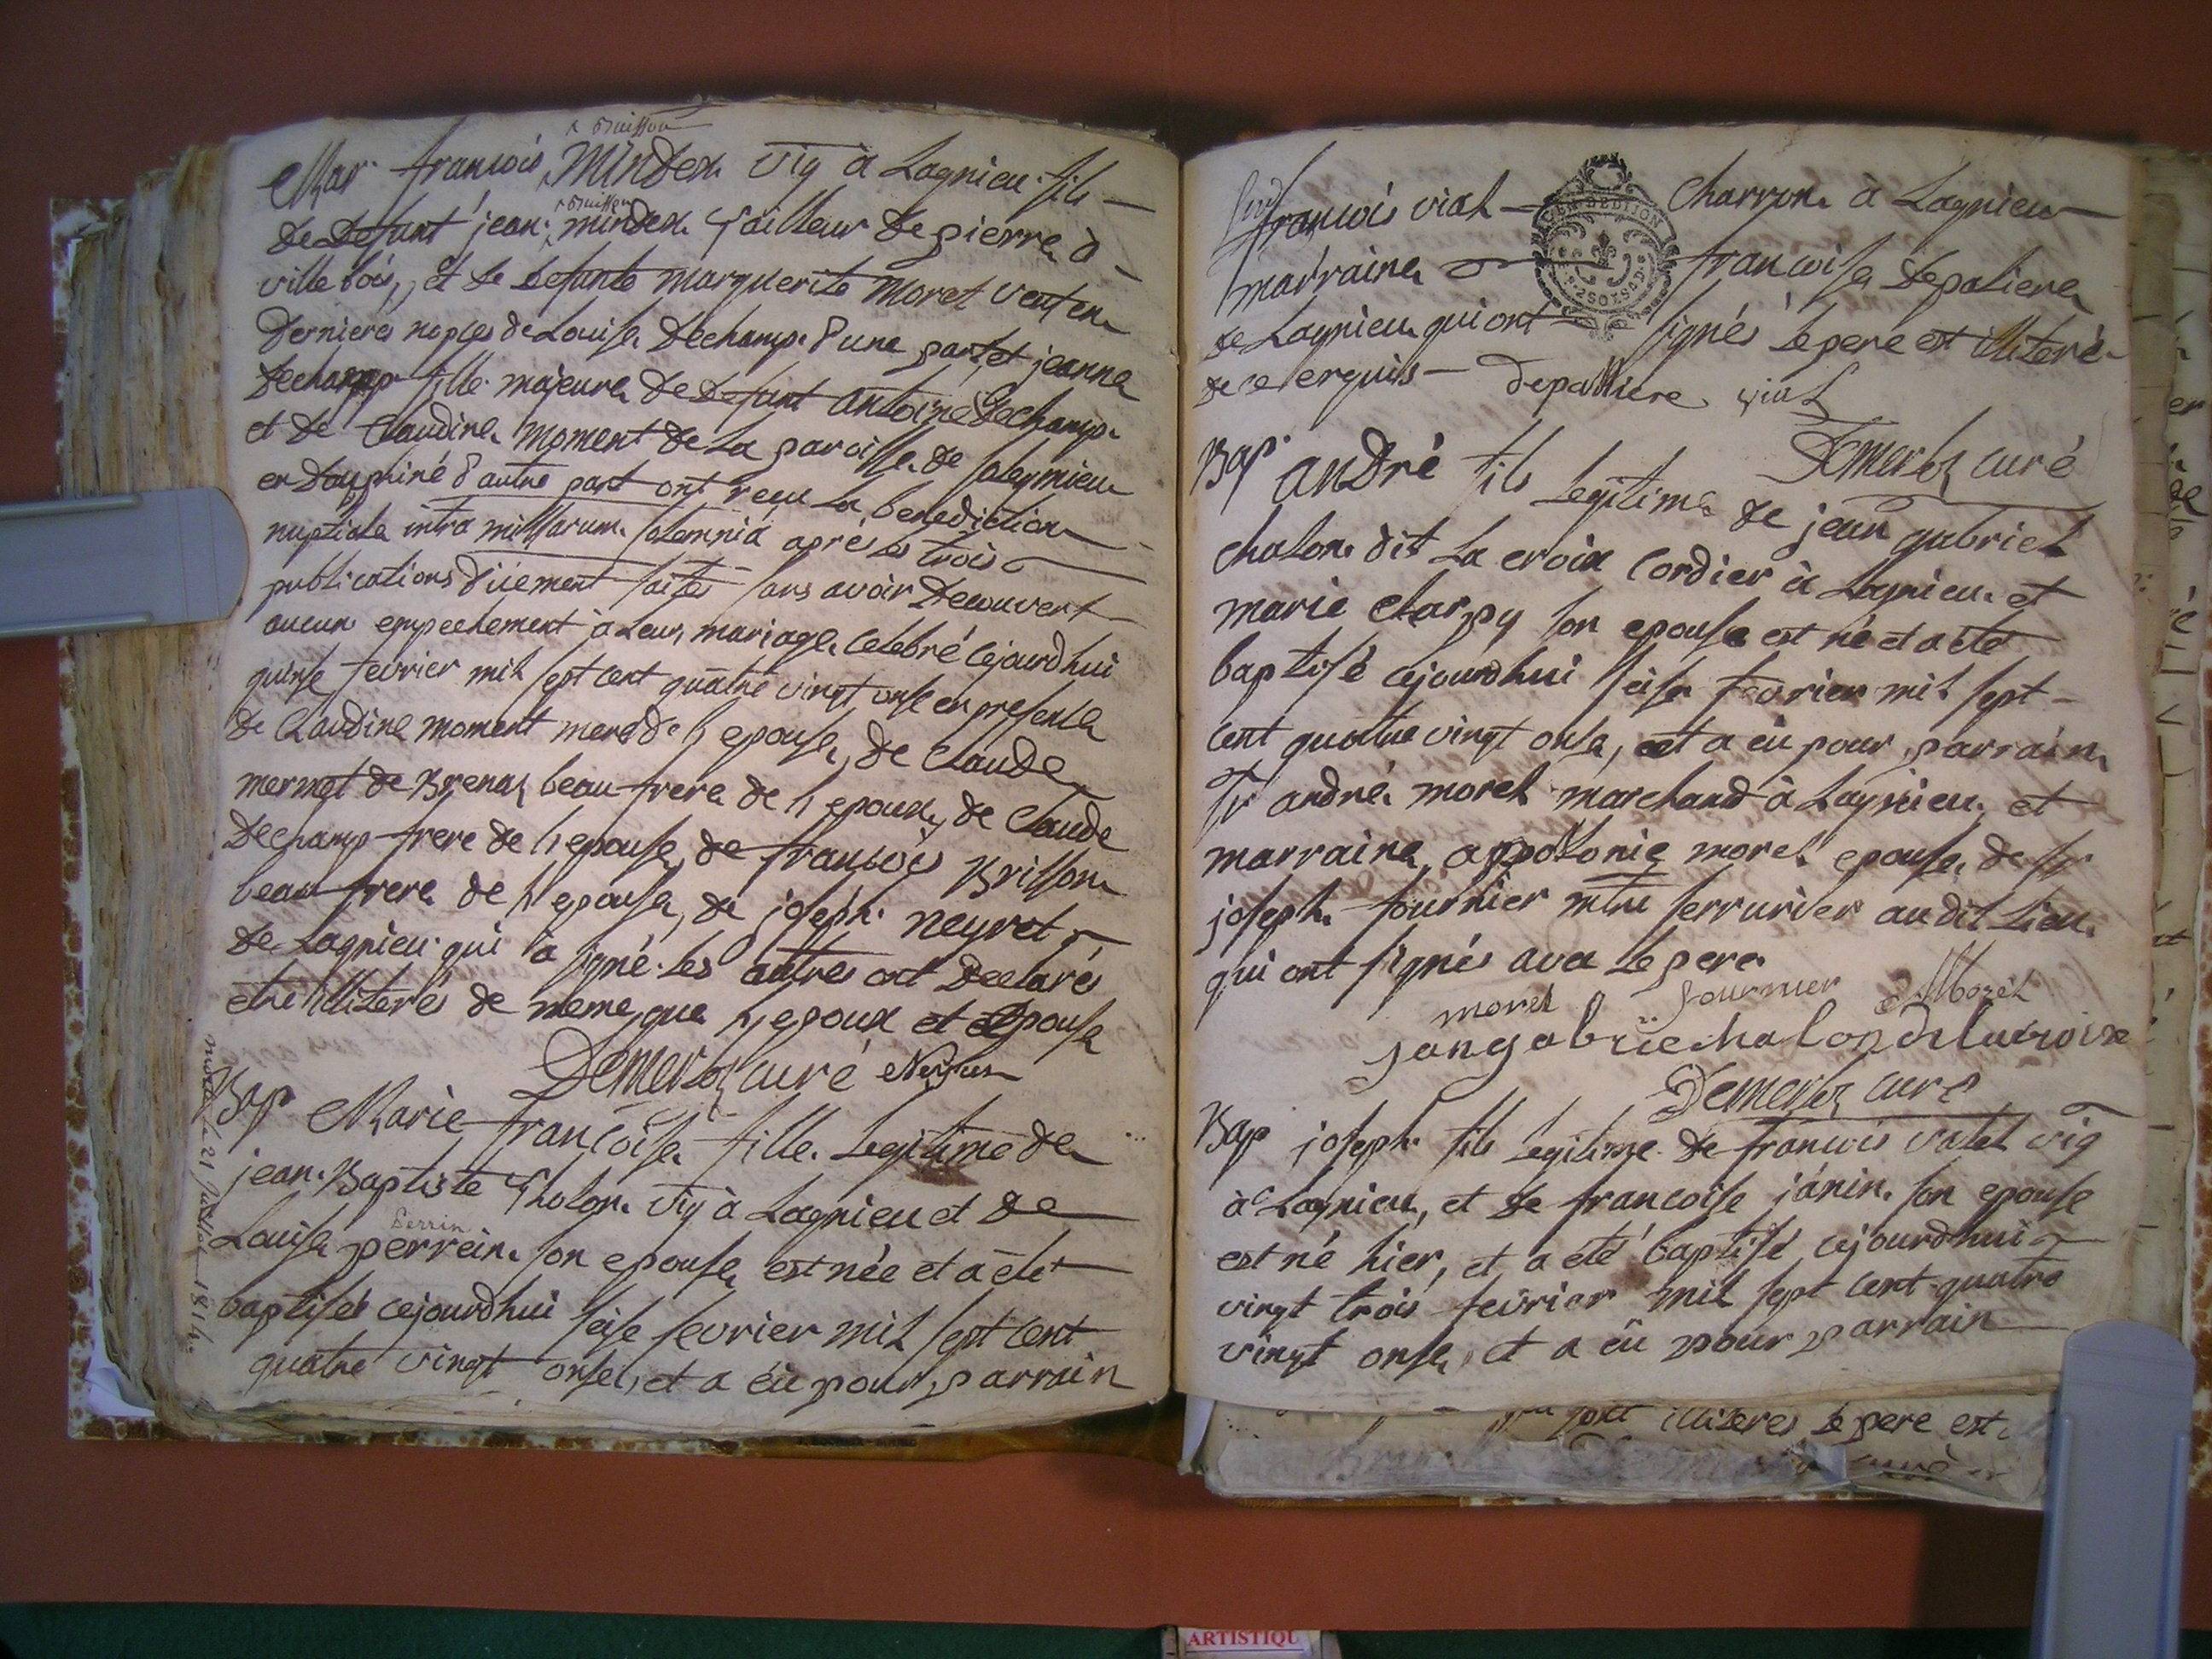 x Buisson
Mar francois mindex vig à Lagnieu fils
x Buisson
de defunt jean mindex tailleur de pierre à
ville bois, et de defunte marguerite moret veuf en
dernieres nopces de Louise Dechamp d'une part, et jeanne
Dechamp fille majeure de defunt antoine Dechamp
et de Claudine moment de La paroisse de
en dauphiné d'autre part ont reçu La benediction
nuptiale intra missarum solemnia après les trois
publications düement faites sans avoir decouvert
aucun empechement à Leur mariage celebré cejourdhui
quinse fevrier mil sept cent quatre vingt onse en presence
de Claudine moment mere de l'epouse, de Claude
mermet de Brenaz beau frere de l'epoux, de Claude
Dechamp frere de l'epouse, de francois Brisson
beau frere de l'epouse, de joseph neyret
de Lagnieu qui a signé. Les autres ont declarés
etre illiterés de meme que l'epoux et l'epouse
Demerloz curé
Bap Marie françoise fille Legitime de
jean Baptiste Cholon vig à Lagnieu et de
Perrin
Louise perrein son epouse est née et a été
baptisée cejourdhui seise fevrier mil sept cent
quatre vingt onse, et a eü pour parrain
21 1814
francois vial charron à Lagnieu
marraine francoise depaliere
de Lagnieu qui ont signés Le pere est illiteré
de ce enquis depalliere vial
Demerloz curé
Bap andré fils Legitime de jean gabriel
chalon dit La croix Cordier à Lagnieu et
marie Charpy son epouse est né et a été
baptisé cejourdhui seise fevrier mil sept
cent quatre vingt onse, et a eü pour parrain
Sr andré morel marchand à Lagnieu, et
marraine appolonie morel epouse de Sr
joseph fournier mtre serrurier audit Lieu
qui ont signés avec Le pere
morel fournier Morel
jangabrïechalon delacroix
Demerloz curé
Bap joseph fils Legitime de francois valet vig
à Lagnieu, et de francoise jánin son epouse
est né hier, et a été baptisé cejourdhui
vingt trois fevrier mil sept cent quatre
vingt onse, et a eü pour parrain
sont illiteres Le pere est
curé
ARTISTIQU